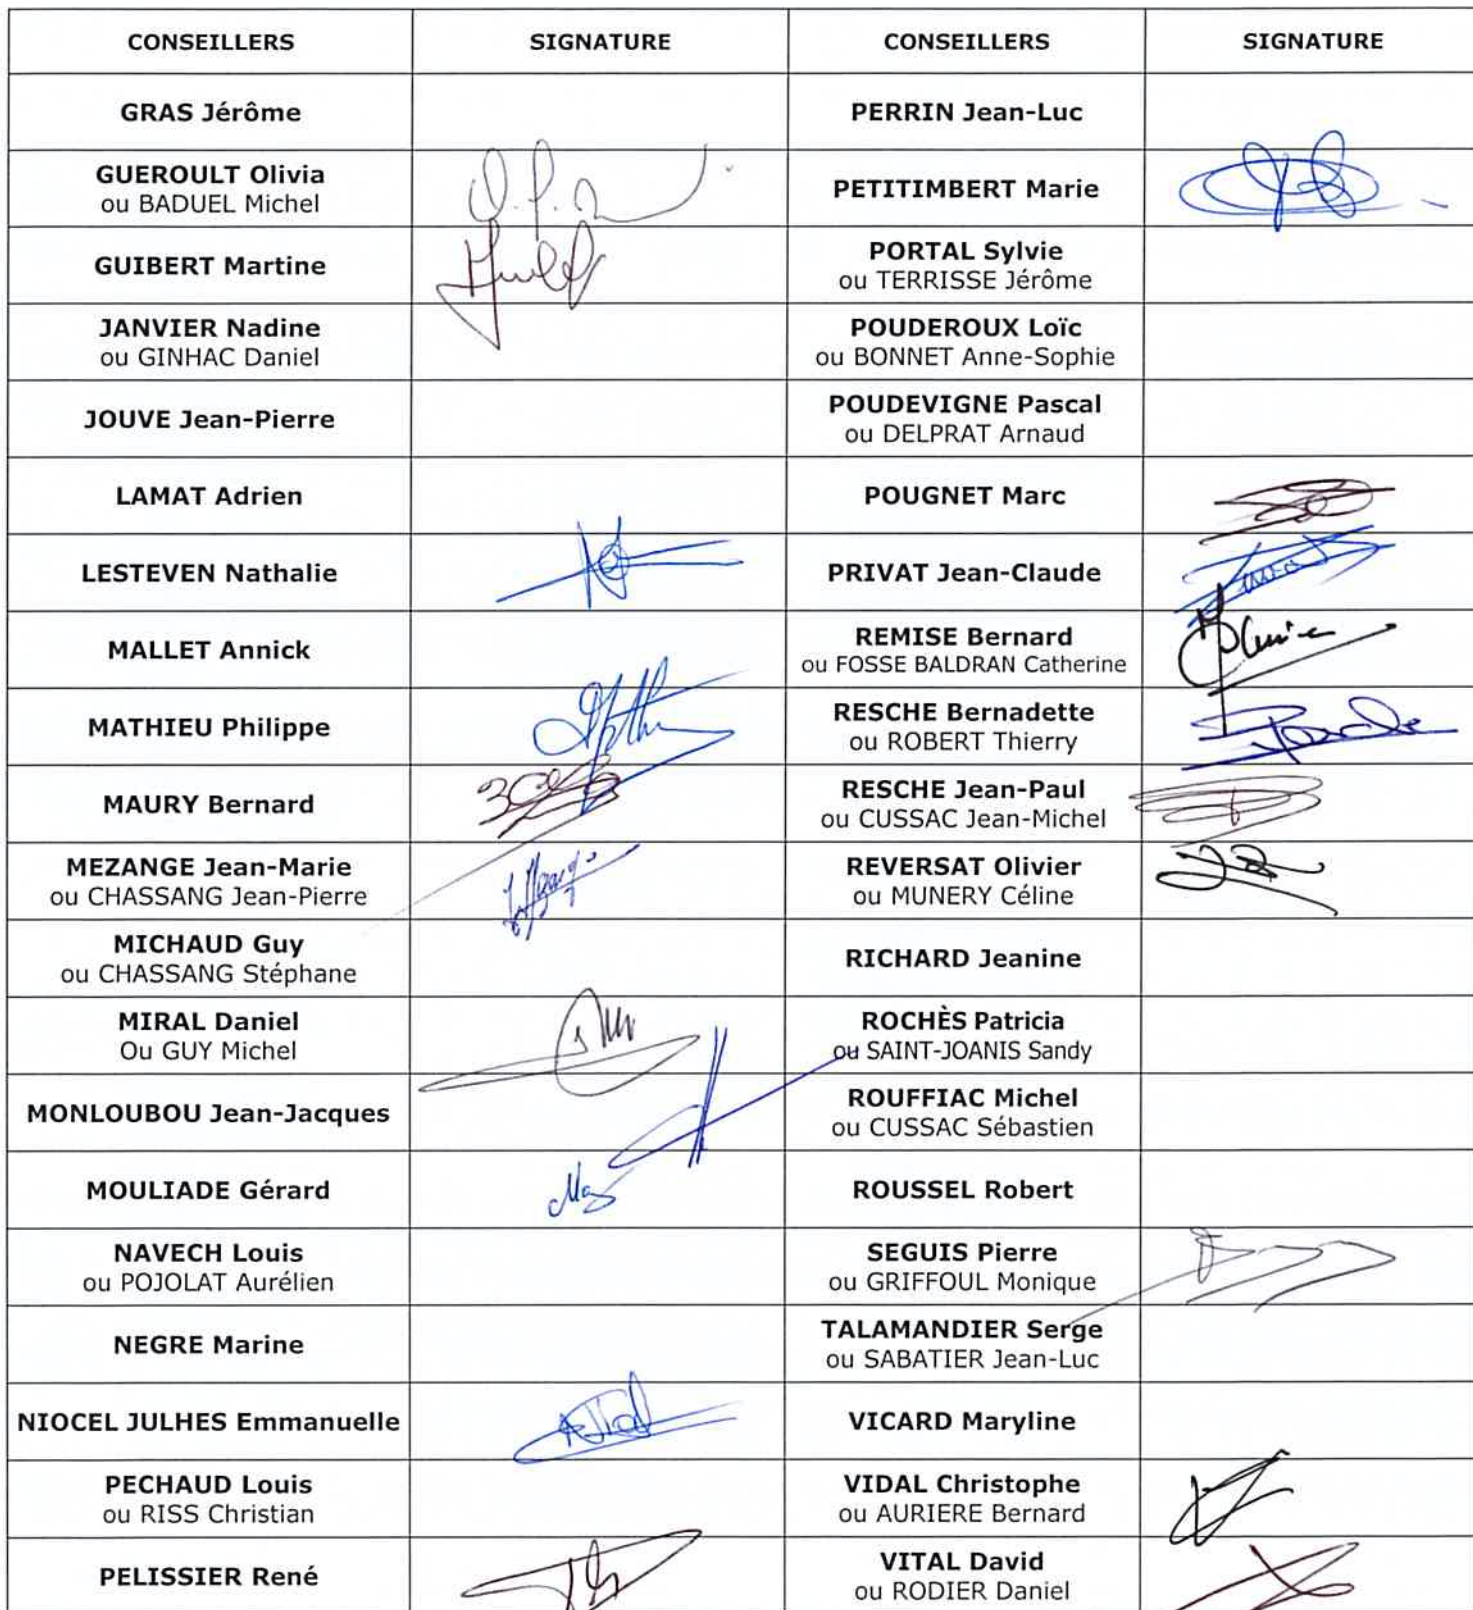 CONSEILLERS SIGNATURE CONSEILLERS SIGNATURE
GRAS Jérôme PERRIN Jean-Luc
GUEROULT Olivia PETITIMBERT Marie
ou BADUEL Michel
GUIBERT Martine PORTAL Sylvie
ou TERRISSE Jérôme
JANVIER Nadine POUDEROUX Loïc
ou GINHAC Daniel ou BONNET Anne-Sophie
JOUVE Jean-Pierre POUDEVIGNE Pascal
ou DELPRAT Arnaud
LAMAT Adrien POUGNET Marc
LESTEVEN Nathalie PRIVAT Jean-Claude
MALLET Annick REMISE Bernard
ou FOSSE BALDRAN Catherine
MATHIEU Philippe RESCHE Bernadette
ou ROBERT Thierry
MAURY Bernard RESCHE Jean-Paul
ou CUSSAC Jean-Michel
MEZANGE Jean-Marie REVERSAT Olivier
ou CHASSANG Jean-Pierre ou MUNERY Céline
MICHAUD Guy RICHARD Jeanine
ou CHASSANG Stéphane
MIRAL Daniel ROCHÈS Patricia
Ou GUY Michel ou SAINT-JOANIS Sandy
MONLOUBOU Jean-Jacques ROUFFIAC Michel
ou CUSSAC Sébastien
MOULIADE Gérard ROUSSEL Robert
NAVECH Louis SEGUIS Pierre
ou POJOLAT Aurélien ou GRIFFOUL Monique
NEGRE Marine TALAMANDIER Serge
ou SABATIER Jean-Luc
NIOCEL JULHES Emmanuelle VICARD Maryline
PECHAUD Louis VIDAL Christophe
ou RISS Christian ou AURIERE Bernard
PELISSIER René VITAL David
ou RODIER Daniel